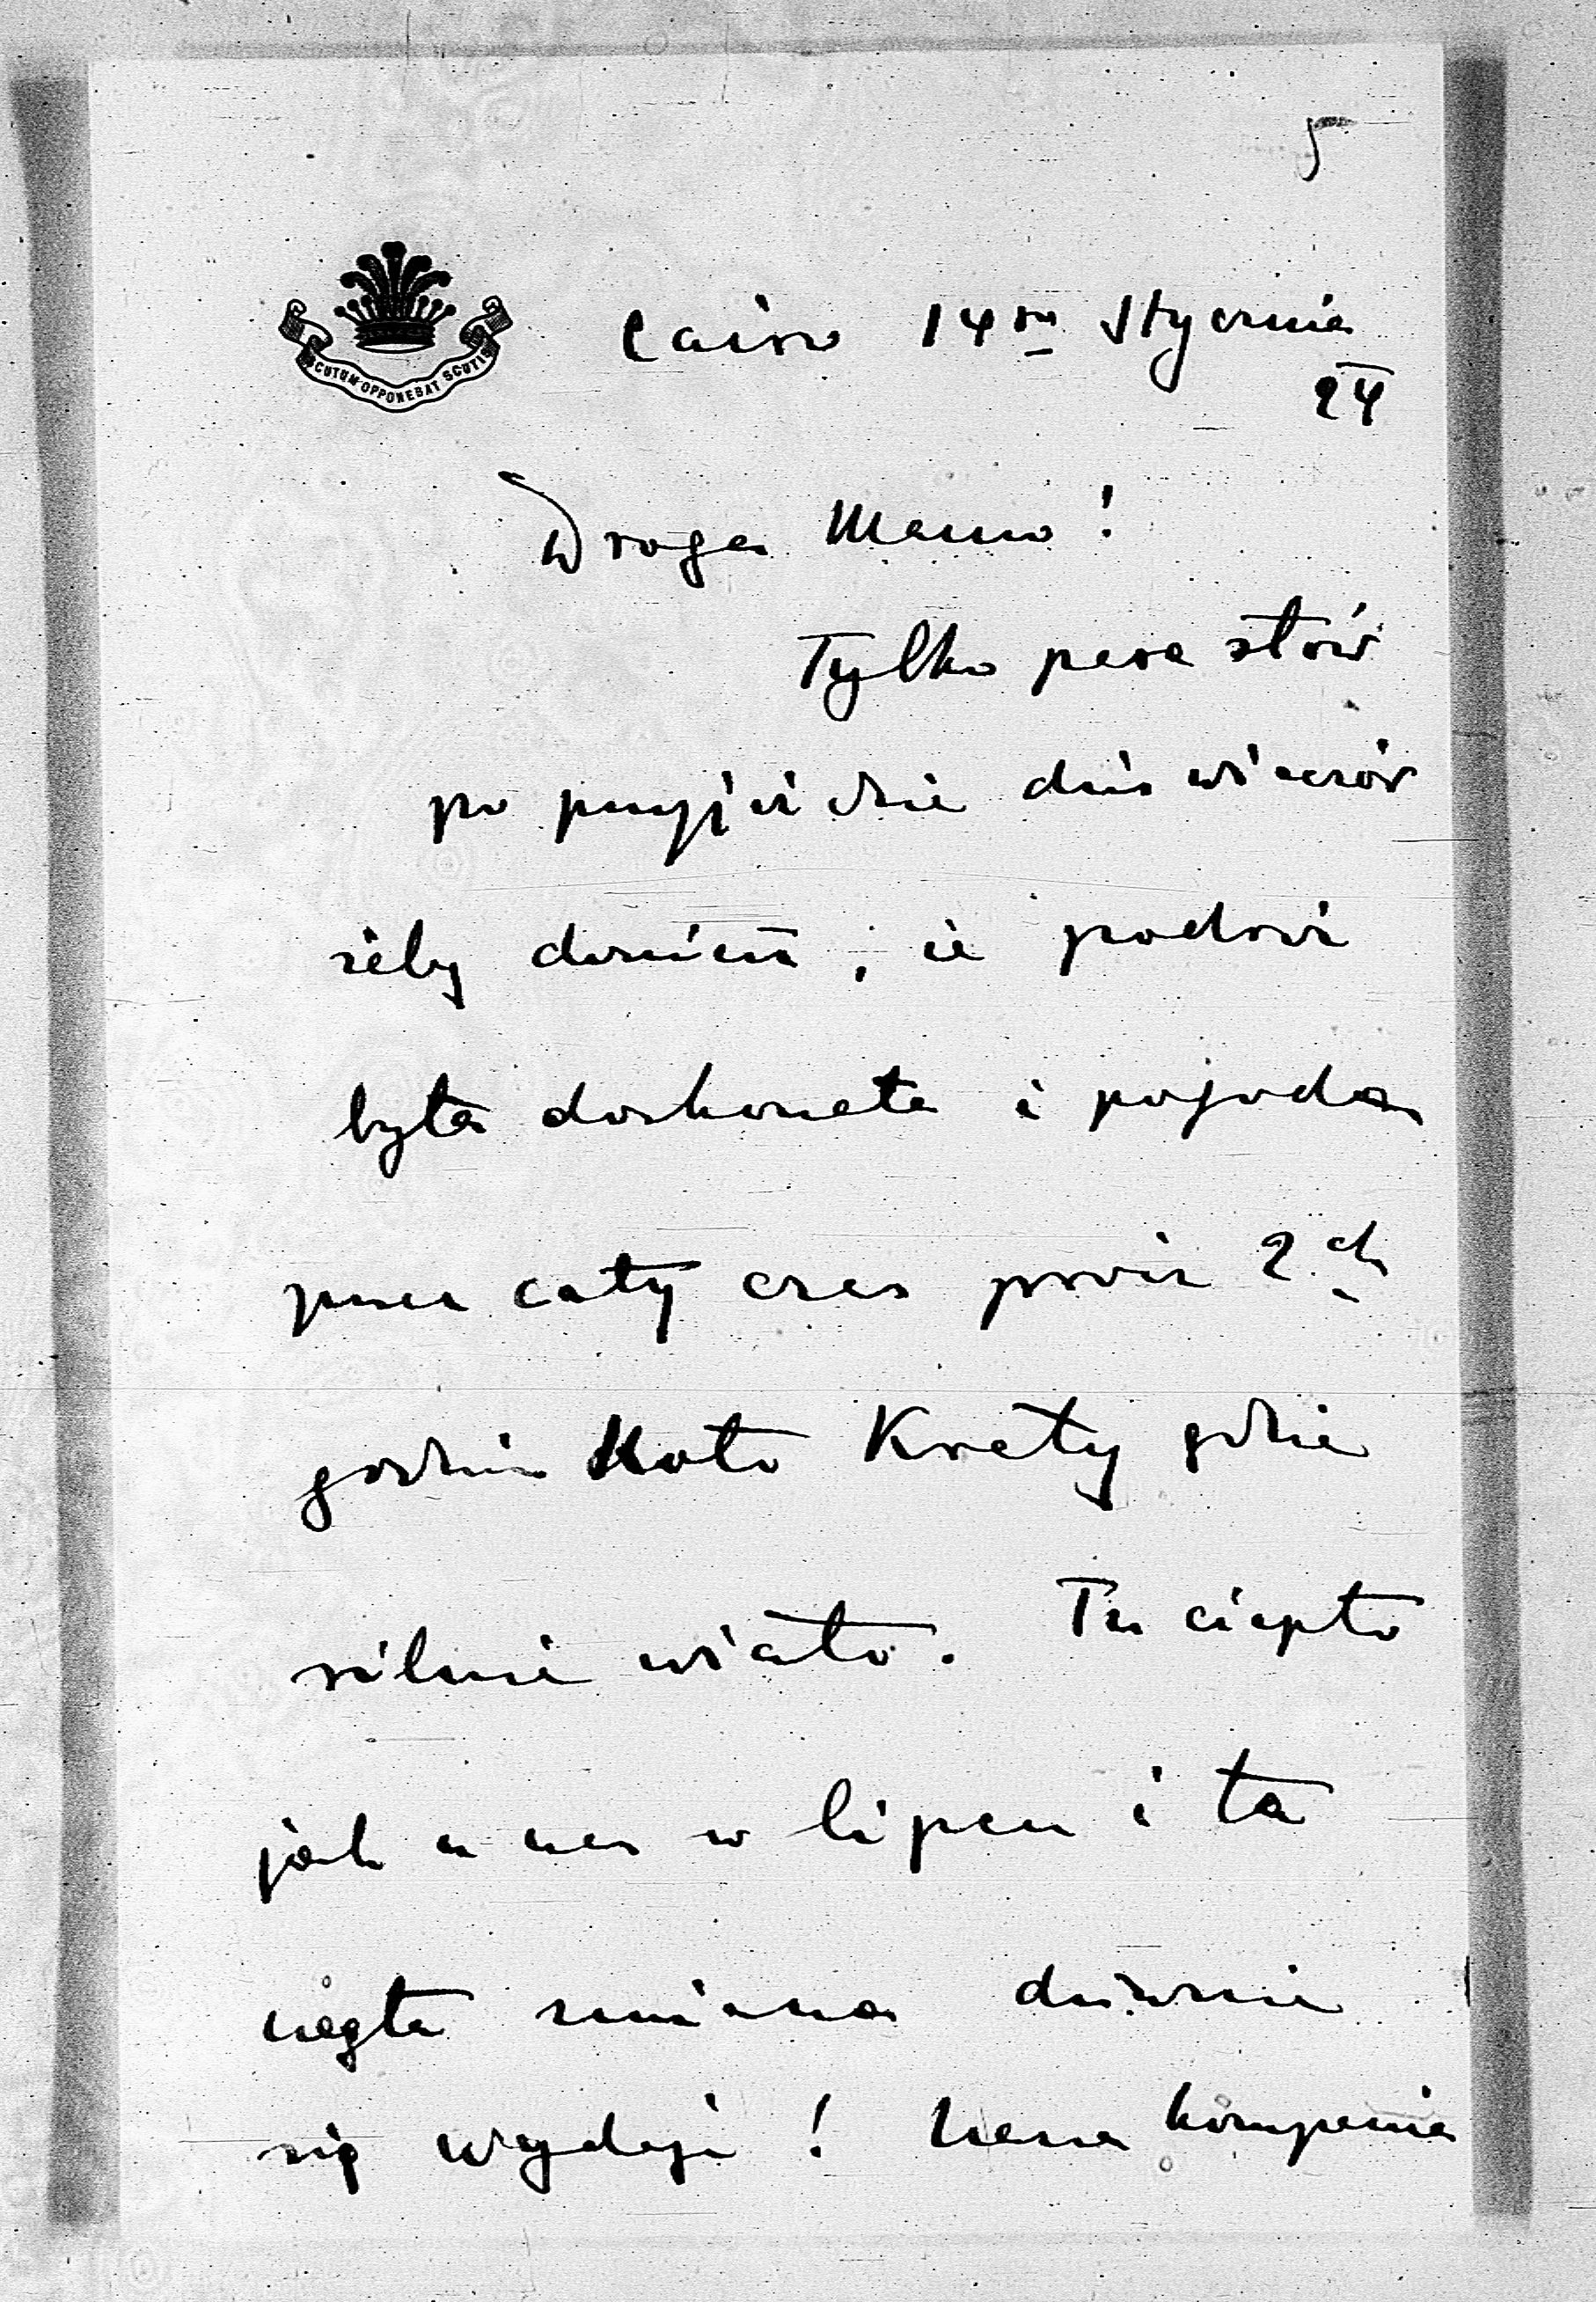 5
SCUTUM OPPONEBAT SCUTIS
Cairo 14go Stycznia
24
Droga Mamo!
Tylko para słów
po przyjeździe dziś wieczór
żeby donieść, że podróż
była doskonała i pogoda
przez cały czas prócz 2ch
godzin koło Krety gdzie
silnie wiało. Tu ciepło
jak u nas w lipcu i ta
nagła zmiana dziwnie
się wydaje! Nasza kompania